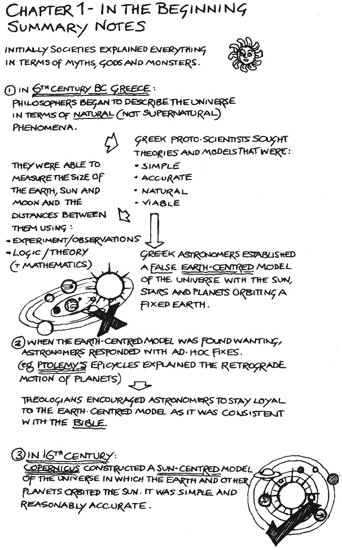 CHAPTER 1 - IN THE BEGINNING
SUMMARY NOTES
INITIALLY SOCIETIES EXPLAINED EVERYTHING
IN TERMS OF MYTHS, GODS AND MONSTERS.
① IN 6TH CENTURY BC GREECE:
PHILOSOPHERS BEGAN TO DESCRIBE THE UNIVERSE
IN TERMS OF NATURAL (NOT SUPERNATURAL)
PHENOMENA.
GREEK PROTO-SCIENTISTS SOUGHT
THEORIES AND MODELS THAT WERE:
• SIMPLE
• ACCURATE
• NATURAL
• VIABLE
THEY WERE ABLE TO
MEASURE THE SIZE OF
THE EARTH, SUN AND
MOON AND THE
DISTANCES BETWEEN
THEM USING:
• EXPERIMENT/OBSERVATIONS
• LOGIC/THEORY
(+ MATHEMATICS)
GREEK ASTRONOMERS ESTABLISHED
A FALSE EARTH-CENTRED MODEL
OF THE UNIVERSE WITH THE SUN,
STARS AND PLANETS ORBITING A
FIXED EARTH.
② WHEN THE EARTH-CENTRED MODEL WAS FOUND WANTING,
ASTRONOMERS RESPONDED WITH AD-HOC FIXES.
(eg. PTOLEMY'S EPICYCLES EXPLAINED THE RETROGRADE
MOTION OF PLANETS)
THEOLOGIANS ENCOURAGED ASTRONOMERS TO STAY LOYAL
TO THE EARTH-CENTRED MODEL AS IT WAS CONSISTENT
WITH THE BIBLE.
③ IN 16TH CENTURY:
COPERNICUS CONSTRUCTED A SUN-CENTRED MODEL
OF THE UNIVERSE IN WHICH THE EARTH AND OTHER
PLANETS ORBITED THE SUN. IT WAS SIMPLE AND
REASONABLY ACCURATE.